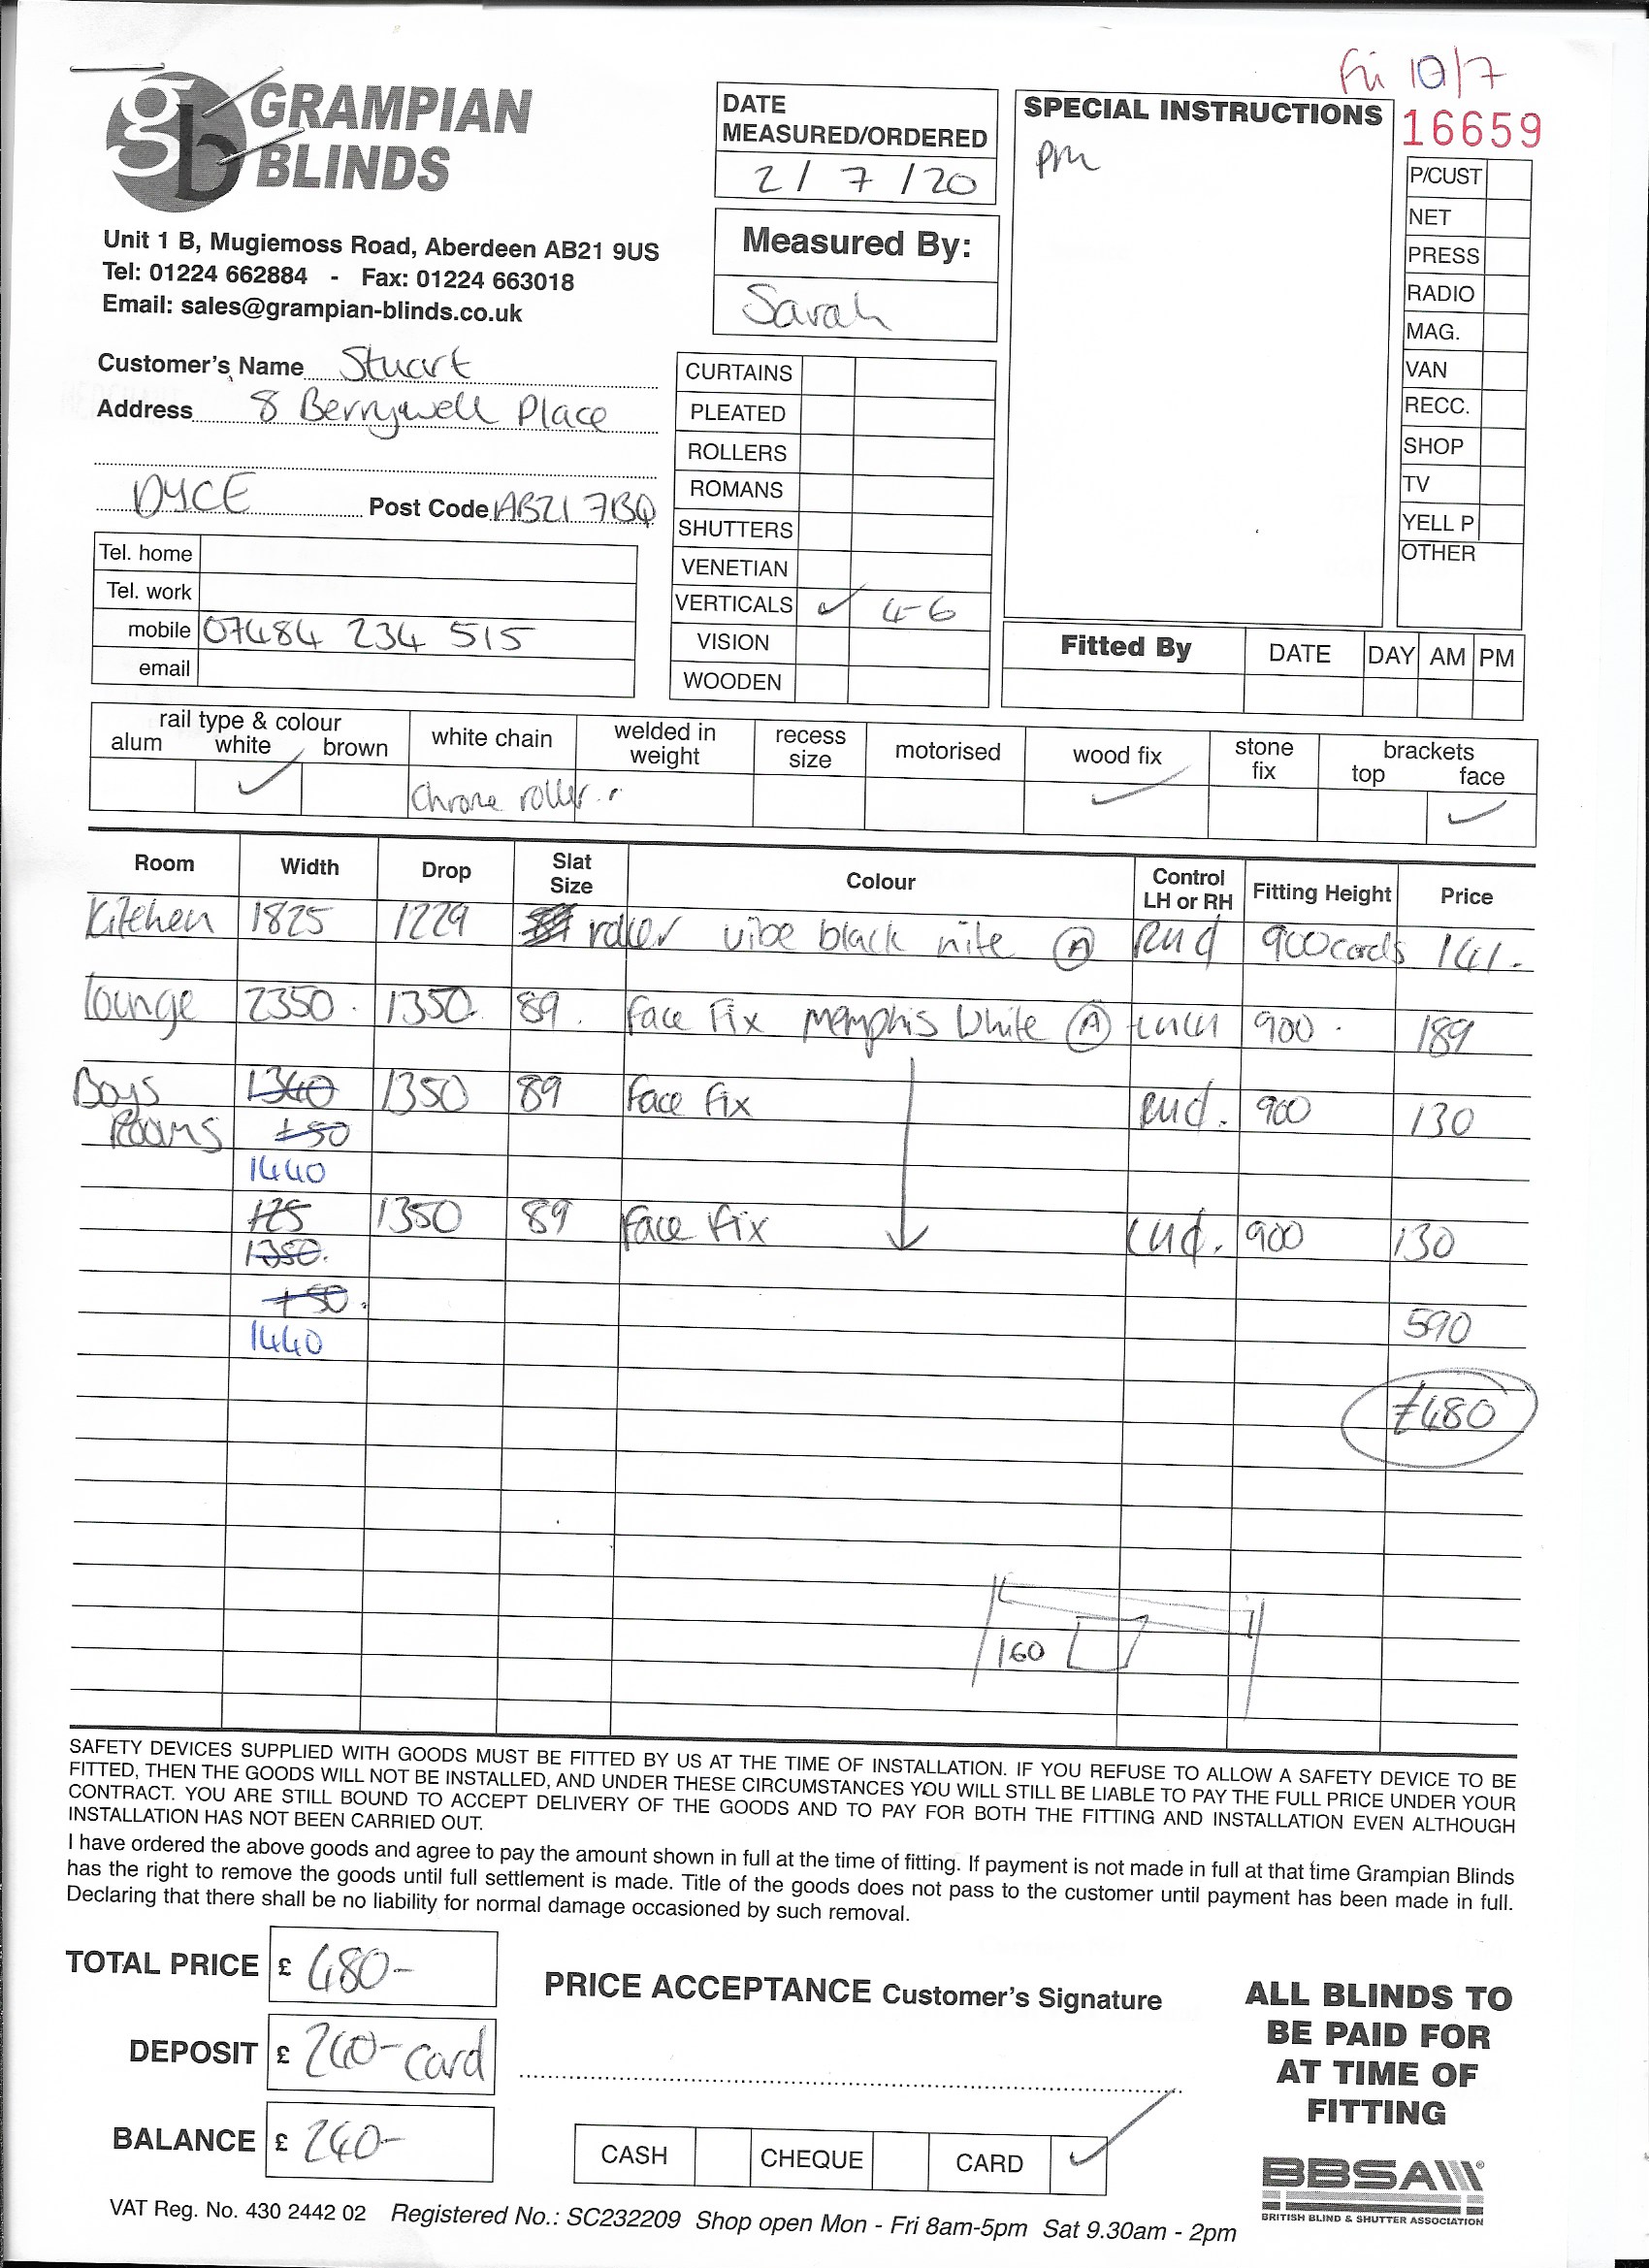 Fri 10/7
gb GRAMPIAN BLINDS
Unit 1 B, Mugiemoss Road, Aberdeen AB21 9US
Tel: 01224 662884 - Fax: 01224 663018
Email: sales@grampian-blinds.co.uk
DATE MEASURED/ORDERED
2 / 7 / 20
Measured By:
Sarah
SPECIAL INSTRUCTIONS
pm
16659
P/CUST
NET
PRESS
RADIO
MAG.
VAN
RECC.
SHOP
TV
YELL P
OTHER
Customer's Name Stuart
Address 8 Berrywell Place
DYCE Post Code AB21 7BQ
Tel. home
Tel. work
mobile 07484 234 515
email
CURTAINS
PLEATED
ROLLERS
ROMANS
SHUTTERS
VENETIAN
VERTICALS ✓ 4-6
VISION
WOODEN
Fitted By DATE DAY AM PM
rail type & colour
alum white brown white chain welded in weight recess size motorised wood fix stone fix brackets top face
✓ Chrome roller ✓ ✓
Room Width Drop Slat Size Colour Control LH or RH Fitting Height Price
Kitchen 1825 1229 roller vibe black nite A 900 cords 141.
lounge 2350 1350 89 face fix memphis white A 900 189
Boys 1340 1350 89 face fix 900 130
Rooms +50
1440
175 1350 89 face fix 900 130
1350
+50 590
1440
£480
160
SAFETY DEVICES SUPPLIED WITH GOODS MUST BE FITTED BY US AT THE TIME OF INSTALLATION. IF YOU REFUSE TO ALLOW A SAFETY DEVICE TO BE
FITTED, THEN THE GOODS WILL NOT BE INSTALLED, AND UNDER THESE CIRCUMSTANCES YOU WILL STILL BE LIABLE TO PAY THE FULL PRICE UNDER YOUR
CONTRACT. YOU ARE STILL BOUND TO ACCEPT DELIVERY OF THE GOODS AND TO PAY FOR BOTH THE FITTING AND INSTALLATION EVEN ALTHOUGH
INSTALLATION HAS NOT BEEN CARRIED OUT.
I have ordered the above goods and agree to pay the amount shown in full at the time of fitting. If payment is not made in full at that time Grampian Blinds
has the right to remove the goods until full settlement is made. Title of the goods does not pass to the customer until payment has been made in full.
Declaring that there shall be no liability for normal damage occasioned by such removal.
TOTAL PRICE £ 480-
DEPOSIT £ 240- card
BALANCE £ 240-
PRICE ACCEPTANCE Customer's Signature
CASH CHEQUE CARD ✓
ALL BLINDS TO
BE PAID FOR
AT TIME OF
FITTING
BBSA
BRITISH BLIND & SHUTTER ASSOCIATION
VAT Reg. No. 430 2442 02 Registered No.: SC232209 Shop open Mon - Fri 8am-5pm Sat 9.30am - 2pm